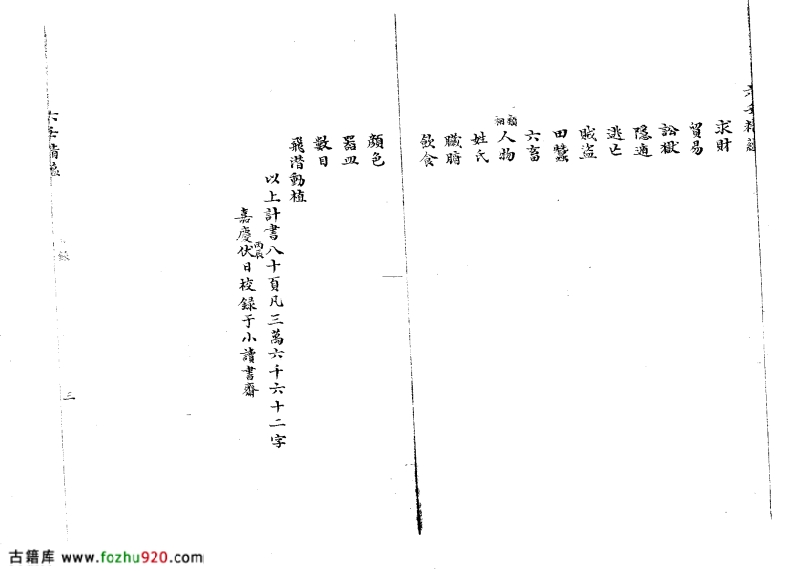 求財
貿易
訟獄
隱遁
逃亡
賊盜
田蠶
六畜
人物 類相
姓氏
臟腑
飲食
顏色
器皿
數目
飛潛動植
以上計書八十頁凡三萬六千六十二字
嘉慶丙辰伏日校録于小讀書齋
三
古籍库 www.fozhu920.com